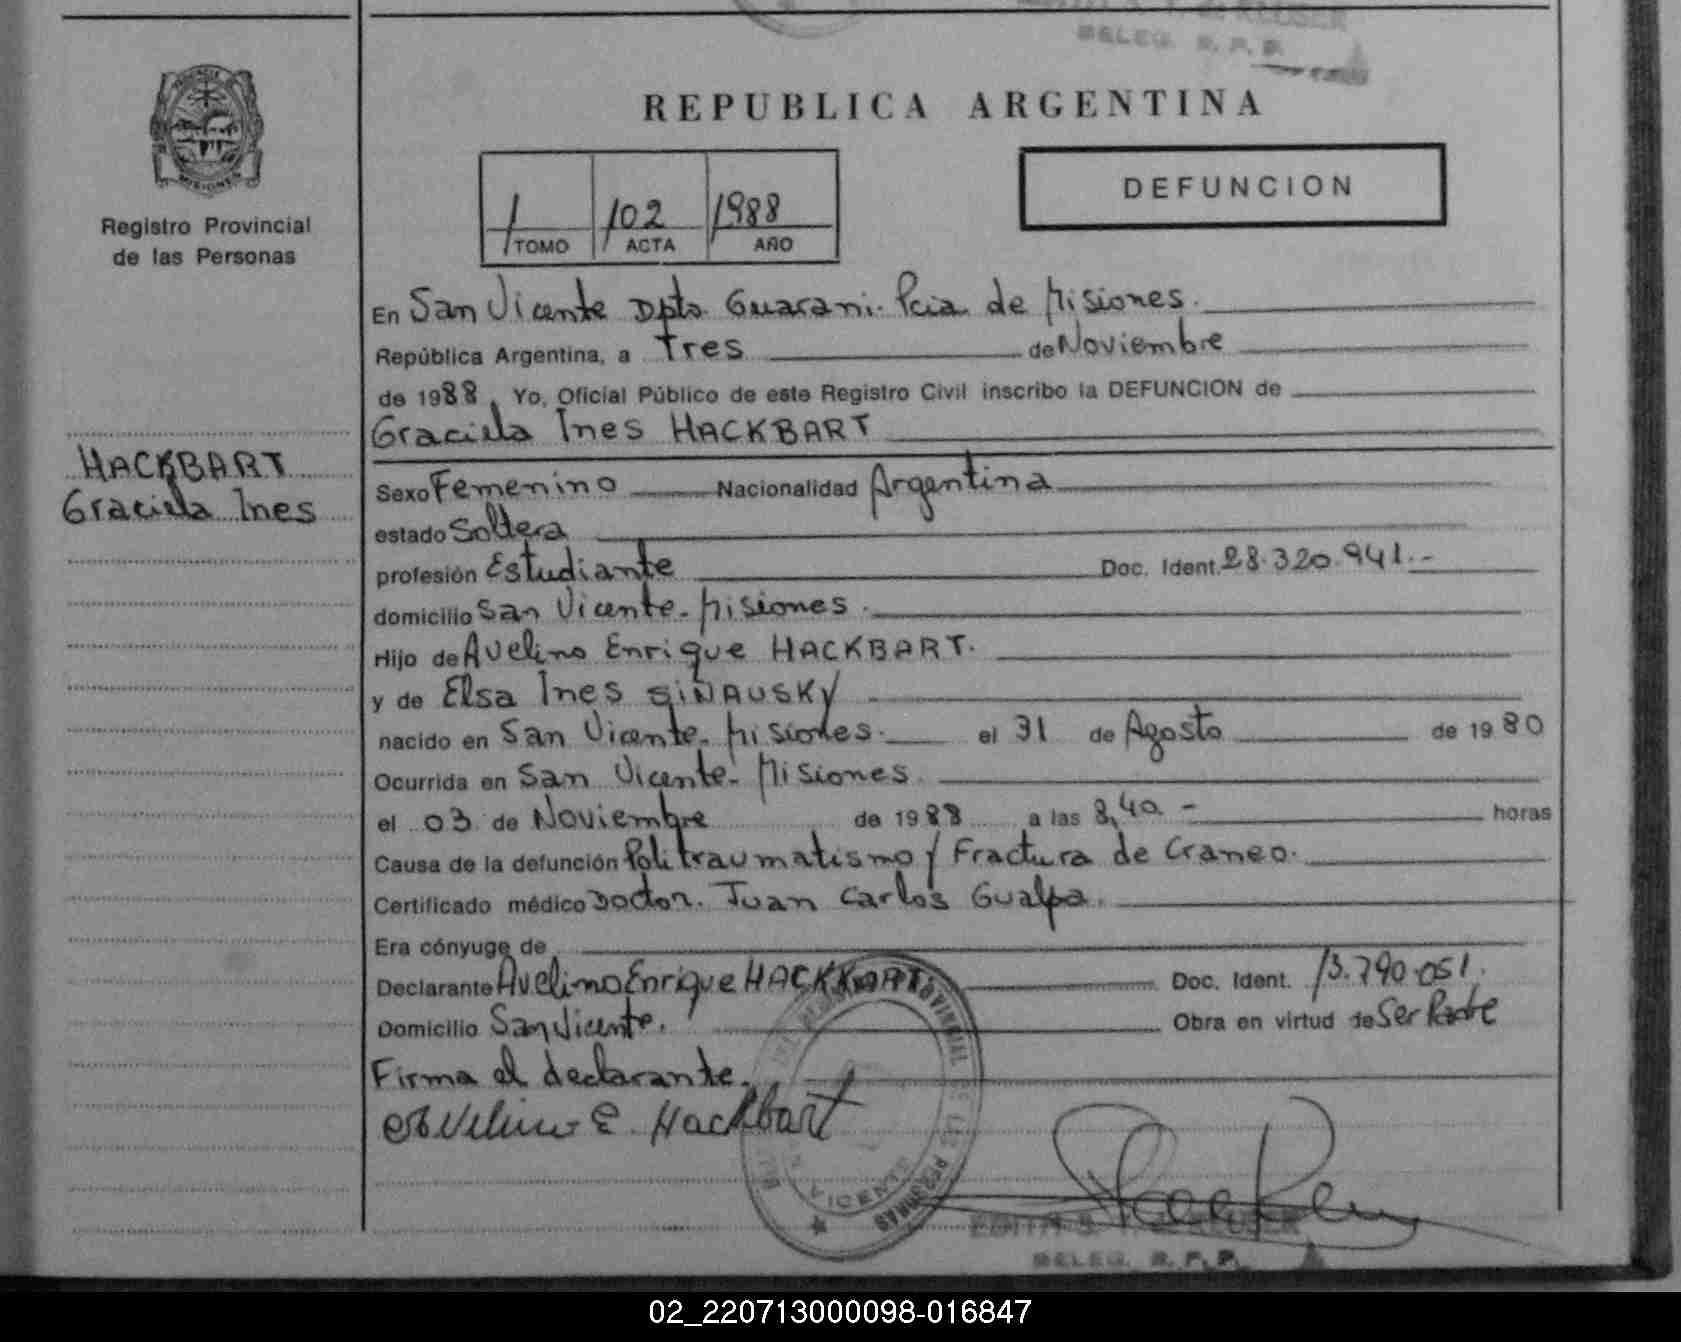 DELEG. R. P. P.
REPUBLICA ARGENTINA
PROVINCIA DE
MISIONES
Registro Provincial
de las Personas
1 102 1988
TOMO ACTA AÑO
DEFUNCION
En San Vicente Dpto. Guarani. Pcia. de Misiones.
República Argentina, a Tres de Noviembre
de 1988, Yo, Oficial Público de este Registro Civil inscribo la DEFUNCION de
Graciela Ines HACKBART
HACKBART
Graciela Ines
Sexo Femenino Nacionalidad Argentina
estado Soltera
profesión Estudiante Doc. Ident. 28.320.941.-
domicilio San Vicente - Misiones.
Hijo de Avelino Enrique HACKBART.
y de Elsa Ines SIÑAUSKY
nacido en San Vicente - Misiones. el 31 de Agosto de 1980
Ocurrida en San Vicente - Misiones.
el 03 de Noviembre de 1988 a las 8,40.- horas
Causa de la defunción Politraumatismo y Fractura de Craneo.
Certificado médico Doctor. Juan Carlos Gualpa.
Era cónyuge de
Declarante Avelino Enrique HACKBART Doc. Ident. 13.790.051.
Domicilio San Vicente. Obra en virtud de Ser Padre
Firma el declarante.
Avelino E. Hackbart
PROVINCIAL DE LAS PERSONAS
SAN VICENTE
DELEG. R. P. P.
02_220713000098-016847